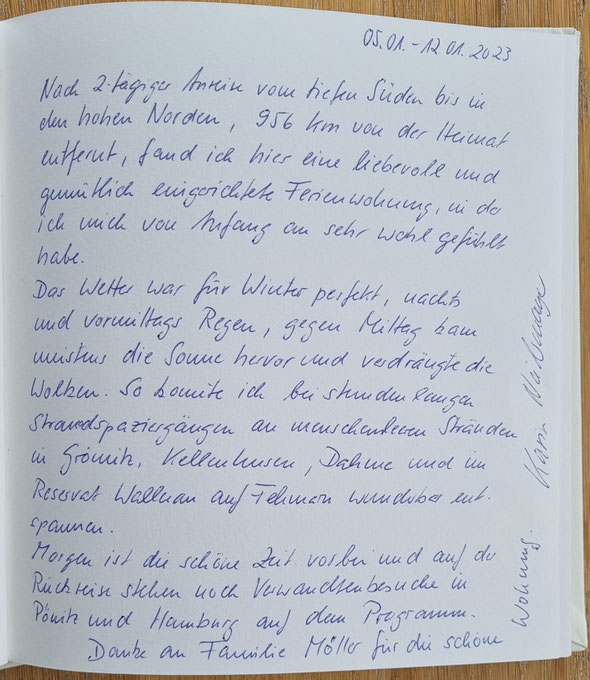 05.01. - 12.01.2023
Nach 2-tägiger Anreise vom tiefen Süden bis in
den hohen Norden, 956 km von der Heimat
entfernt, fand ich hier eine liebevoll und
gemütlich eingerichtete Ferienwohnung, in der
ich mich von Anfang an sehr wohl gefühlt
habe.
Das Wetter war für Winter perfekt, nachts
und vormittags Regen, gegen Mittag kam
meistens die Sonne hervor und verdrängte die
Wolken. So konnte ich bei stundenlangen
Strandspaziergängen an menschenleeren Stränden
in Grömitz, Kellenhusen, Dahme und im
Reservat Wallnau auf Fehmarn wunderbar ent-
spannen.
Morgen ist die schöne Zeit vorbei und auf der
Rückreise stehen noch Verwandtenbesuche in
Pönitz und Hamburg auf dem Programm.
Danke an Familie Möller für die schöne
Wohnung.
Karin